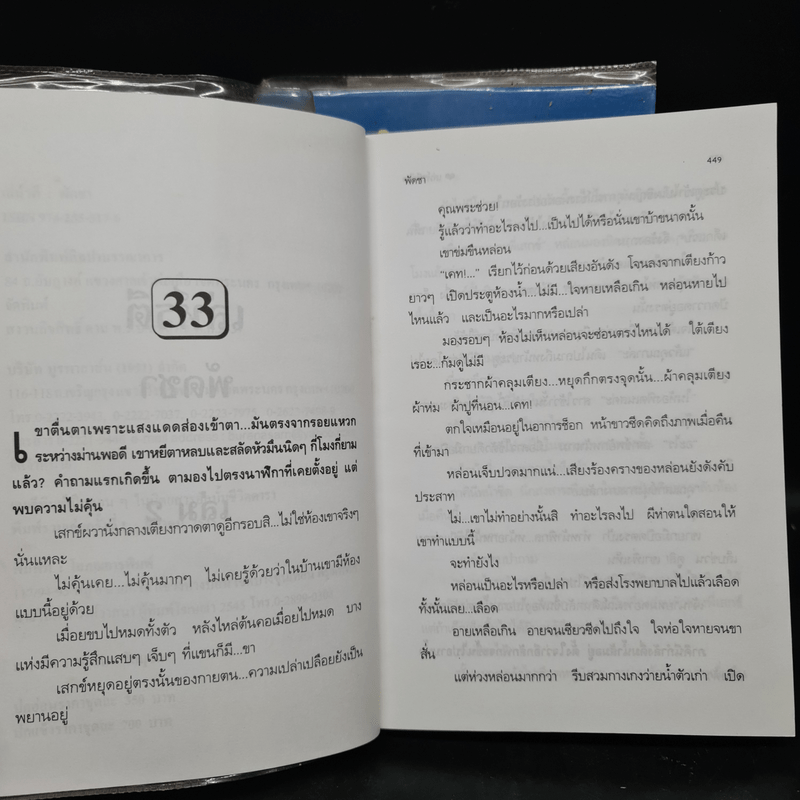 33
เขาตื่นตาเพราะแสงแดดส่องเข้าตา...มันตรงจากรอยแหวก
ระหว่างม่านพอดี เขาหยีตาหลบและสลัดหัวมึนนิดๆ กี่โมงกี่ยาม
แล้ว? คำถามแรกเกิดขึ้น ตามองไปตรงนาฬิกาที่เคยตั้งอยู่ แต่
พบความไม่คุ้น
เสกข์ผวานั่งกลางเตียงกวาดตาดูอีกรอบสิ...ไม่ใช่ห้องเขาจริงๆ
นั่นแหละ
ไม่คุ้นเคย...ไม่คุ้นมากๆ ไม่เคยรู้ด้วยว่าในบ้านเขามีห้อง
แบบนี้อยู่ด้วย
เมื่อยขบไปหมดทั้งตัว หลังไหล่ต้นคอเมื่อยไปหมด บาง
แห่งมีความรู้สึกแสบๆ เจ็บๆ ที่แขนก็มี...ขา
เสกข์หยุดอยู่ตรงนั้นของกายตน...ความเปล่าเปลือยยังเป็น
พยานอยู่
พัดชา
449
คุณพระช่วย!
รู้แล้วว่าทำอะไรลงไป...เป็นไปได้หรือนั่นเขาบ้าขนาดนั้น
เขาข่มขืนหล่อน
“เคท!...” เรียกไว้ก่อนด้วยเสียงอันดัง โจนลงจากเตียงก้าว
ยาวๆ เปิดประตูห้องน้ำ...ไม่มี...ใจหายเหลือเกิน หล่อนหายไป
ไหนแล้ว และเป็นอะไรมากหรือเปล่า
มองรอบๆ ห้องไม่เห็นหล่อนจะซ่อนตรงไหนได้ ใต้เตียง
เรอะ...ก้มดูไม่มี
กระชากผ้าคลุมเตียง...หยุดกึกตรงจุดนั้น...ผ้าคลุมเตียง
ผ้าห่ม ผ้าปูที่นอน...เคท!
ตกใจเหมือนอยู่ในอาการช็อก หน้าขาวซีดคิดถึงภาพเมื่อคืน
ที่เข้ามา
หล่อนเจ็บปวดมากแน่...เสียงร้องครางของหล่อนยังดังคับ
ประสาท
ไม่...เขาไม่ทำอย่างนั้นสิ ทำอะไรลงไป ผีห่าตนใดสอนให้
เขาทำแบบนี้
จะทำยังไง
หล่อนเป็นอะไรหรือเปล่า หรือส่งโรงพยาบาลไปแล้วเลือด
ทั้งนั้นเลย...เลือด
อายเหลือเกิน อายจนเซียวซีดไปถึงใจ ใจห่อใจหายจนชา
สั่น
แต่ห่วงหล่อนมากกว่า รีบสวมกางเกงว่ายน้ำตัวเก่า เปิด